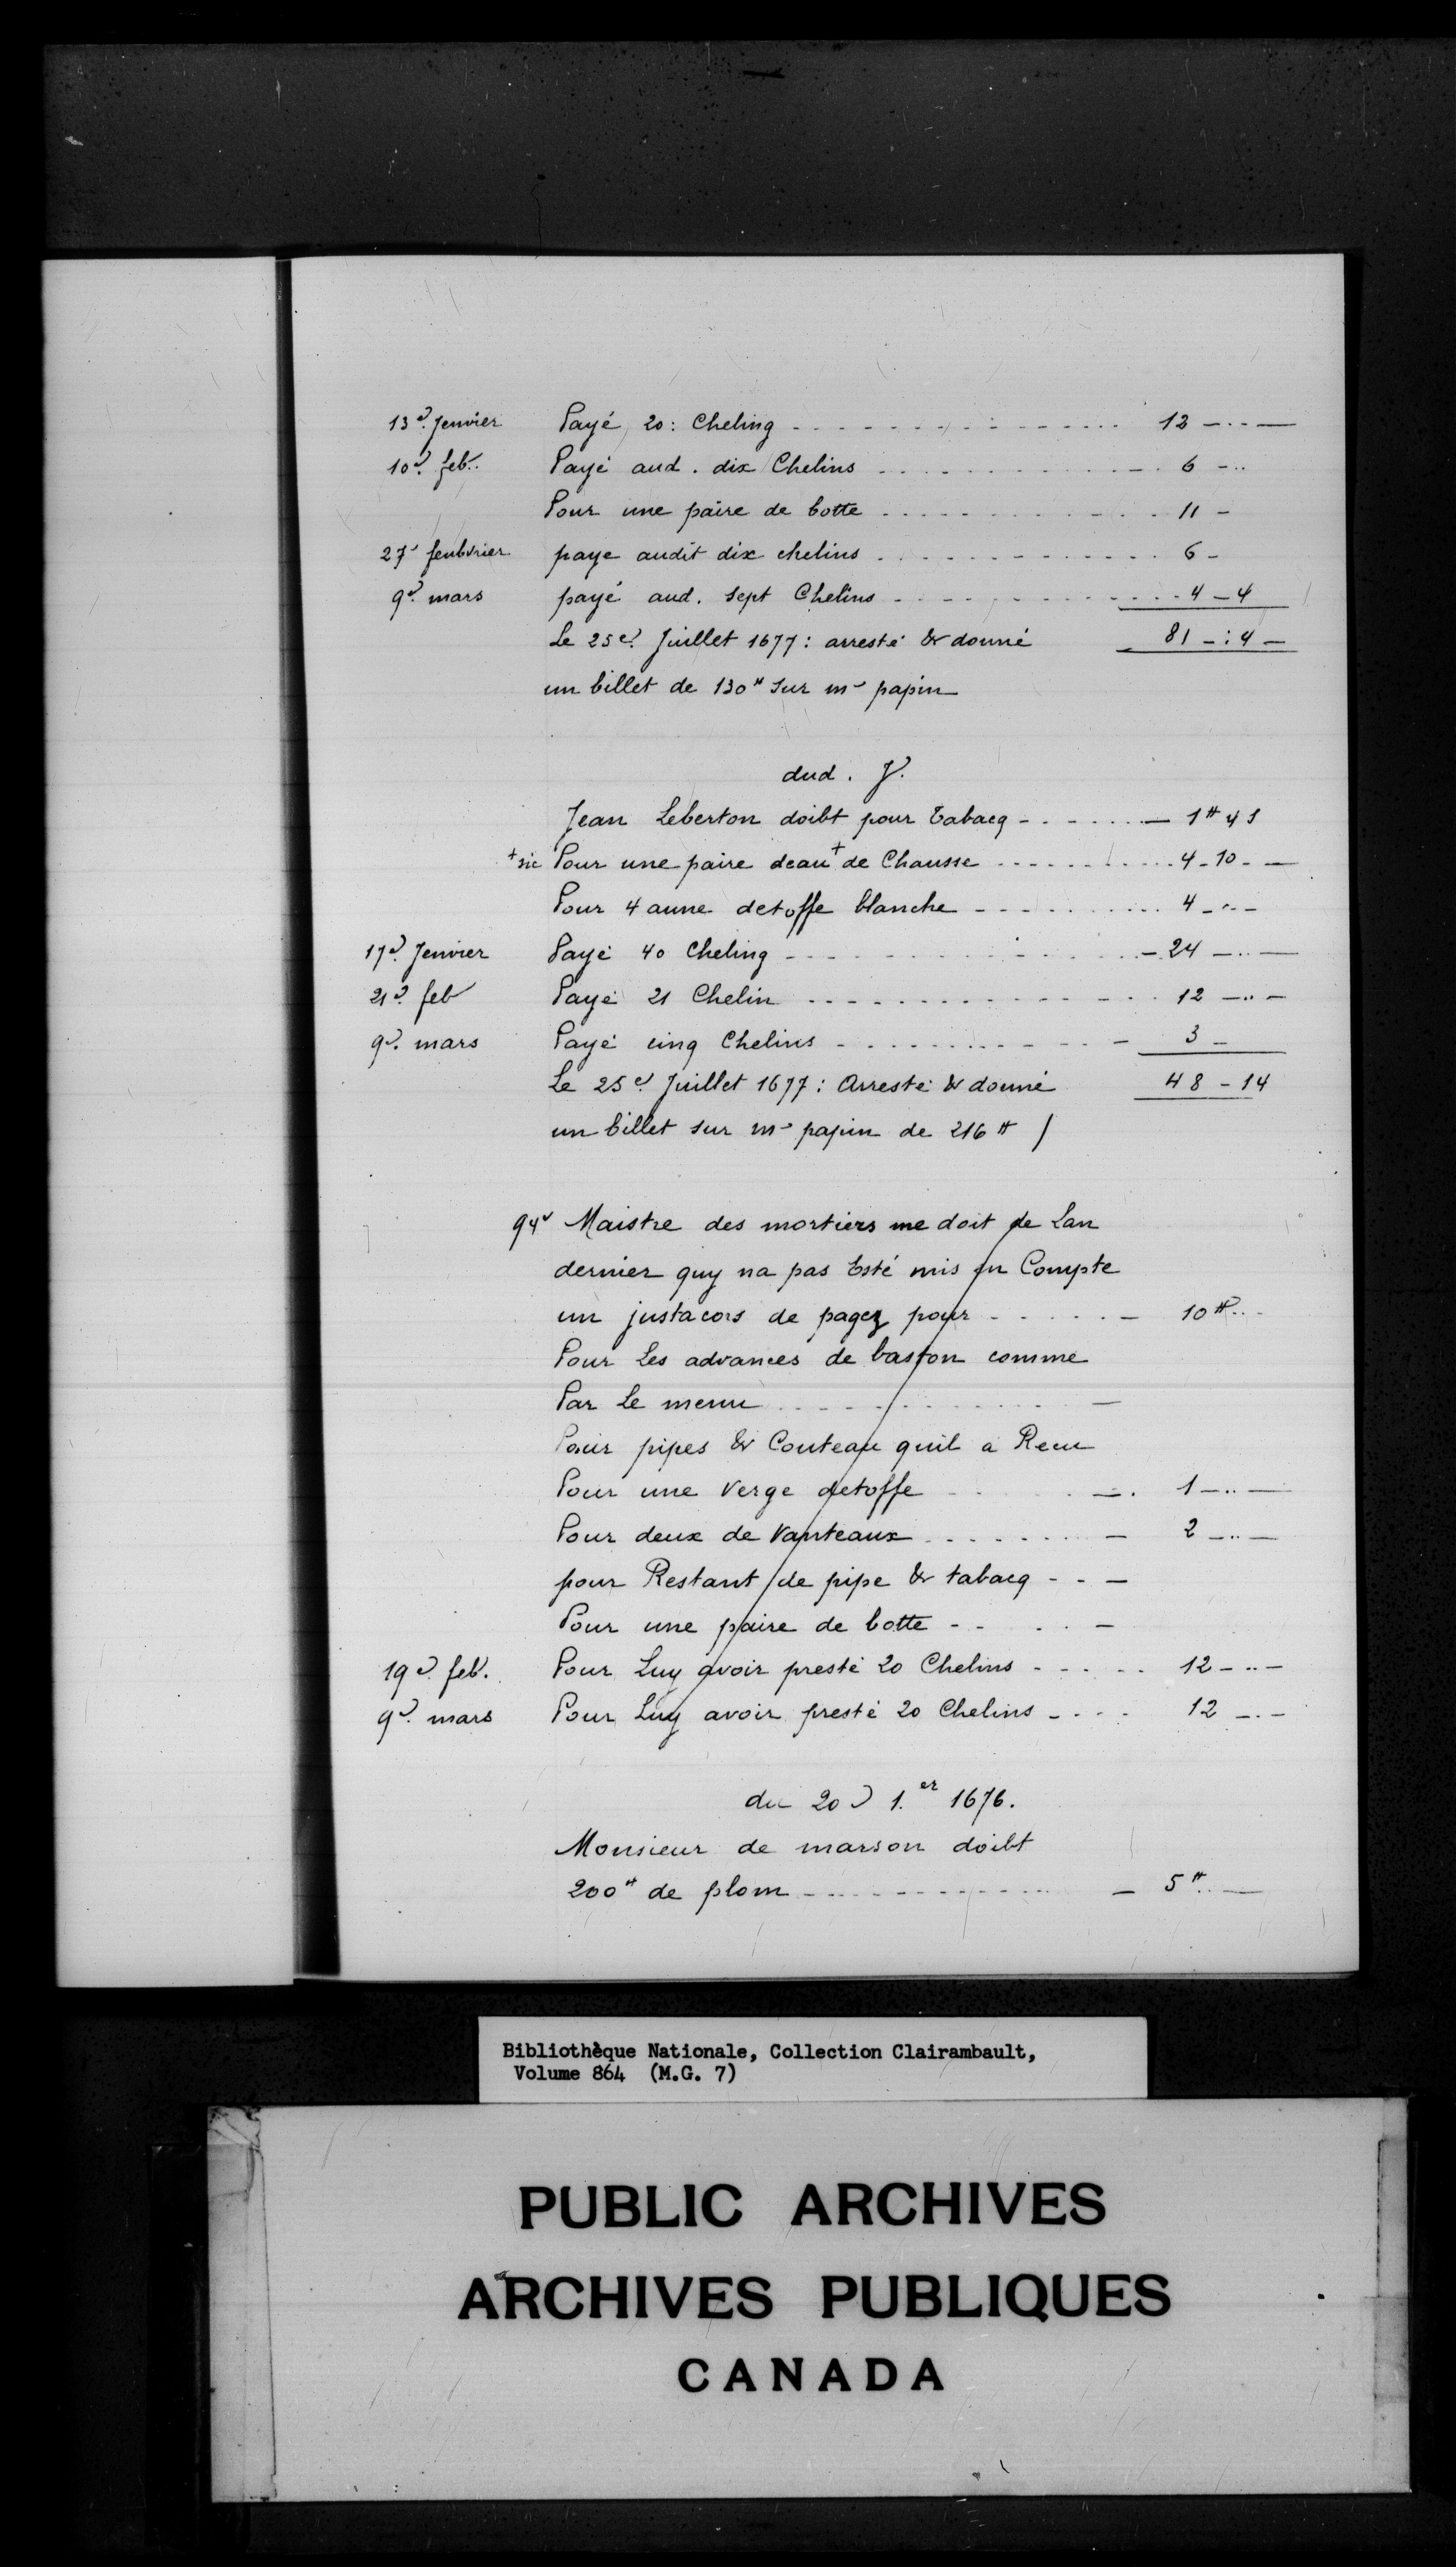 13e. Jenvier Payé 20: Cheling - - - 12 - .. -
10e. feb.. Payé aud. dix Chelins - - - 6 - ..
Pour une paire de botte - - - 11 -
27e feubvrier paye audit dix chelins - - - 6 -
9e. mars payé aud. sept Chelins - - - 4 - 4
Le 25e. Juillet 1677: arresté & donné 81 - : 4 -
un billet de 130# sur mr papin
dud. J.
Jean Leberton doibt pour Tabacq - - - 1# 4 s
+ sic Pour une paire deau + de Chausse - - - 4 - 10 - -
Pour 4 aune detoffe blanche - - - 4 - .. -
17e. Jenvier Payé 40 Cheling - - - 24 - .. -
21e. feb Payé 21 Chelin - - - 12 - .. -
9e. mars Payé cinq Chelins - - - 3 -
Le 25e. Juillet 1677: Arresté & donné 48 - 14
un billet sur mr papin de 216 # /
94v Maistre des mortiers me doit de Lan
dernier quy na pas Esté mis en Compte
un justacors de pagez pour - - - 10# ..
Pour Les advances de baston comme
Par Le menu - - -
Pour pipes & Couteau quil a Receu
Pour une Verge detoffe - - - 1 - .. -
Pour deux de Vanteaux - - - 2 - .. -
pour Restant de pipe & tabacq - - -
Pour une paire de botte - - -
19e. feb. Pour Luy avoir presté 20 Chelins - - - 12 - .. -
9e. mars Pour Luy avoir presté 20 Chelins - - - 12 - . -
du 20e 1.er 1676.
Monsieur de marson doibt
200# de plom - - - 5# .. -
Bibliothèque Nationale, Collection Clairambault,
Volume 864 (M.G. 7)
PUBLIC ARCHIVES
ARCHIVES PUBLIQUES
CANADA